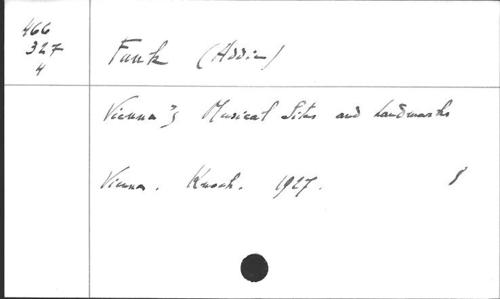 466
327
4
Funk (Addie)
Vienna's Musical Sites and Landmarks
Vienna. Knoch. 1927. 8